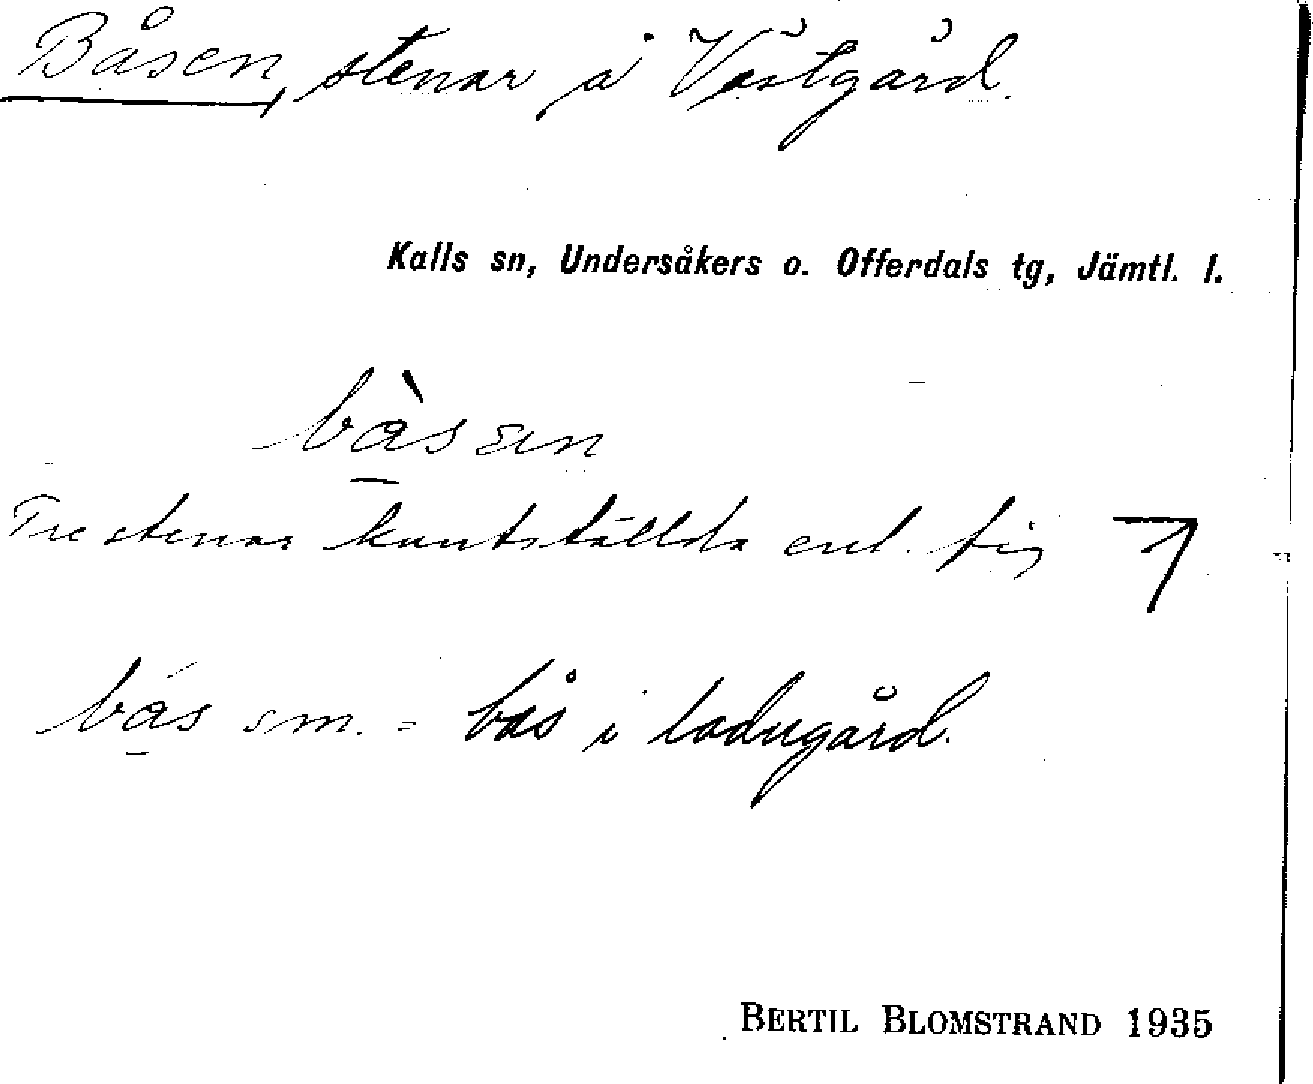 Båsen, stenar å Västgård.
Kalls sn, Undersåkers o. Offerdals tg, Jämtl. l.
bàsen
Tre stenar kantställda enl. fig
bás sm. = bås i ladugård.
BERTIL BLOMSTRAND 1935